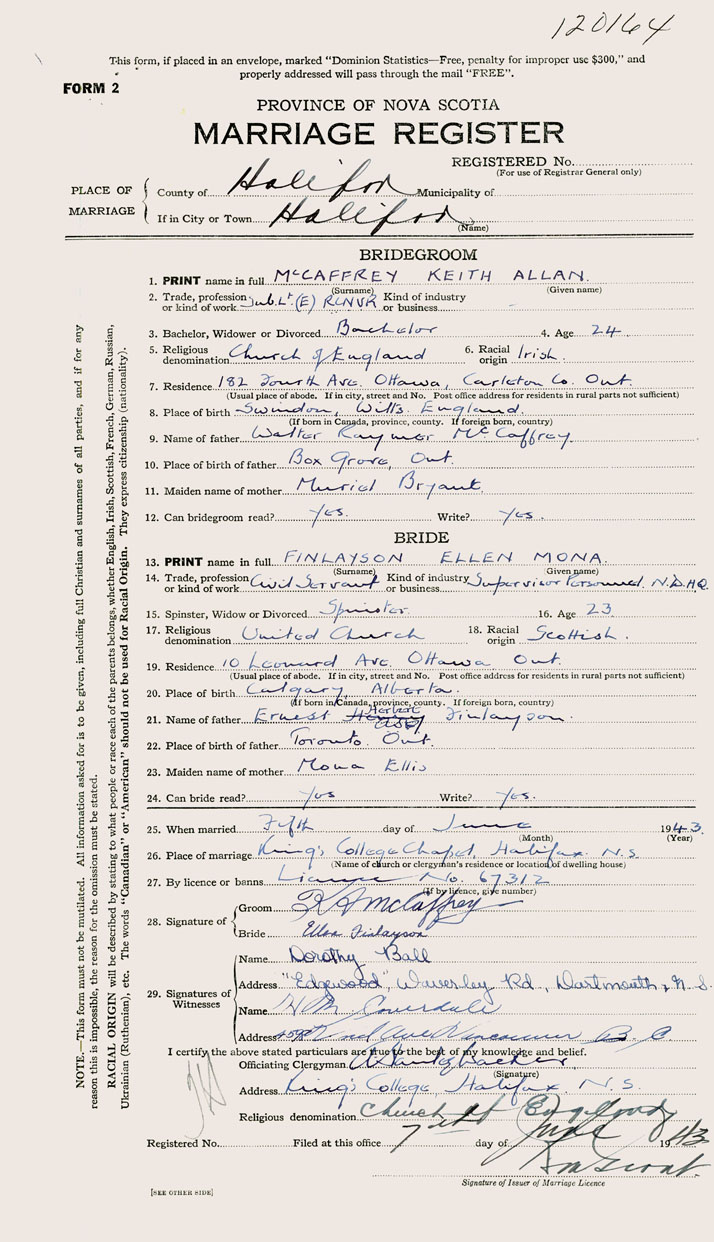 120164
This form, if placed in an envelope, marked "Dominion Statistics—Free, penalty for improper use $300," and
properly addressed will pass through the mail "FREE".
FORM 2
PROVINCE OF NOVA SCOTIA
MARRIAGE REGISTER
REGISTERED No.
(For use of Registrar General only)
PLACE OF MARRIAGE
County of Halifax Municipality of
If in City or Town Halifax
(Name)
BRIDEGROOM
1. PRINT name in full McCAFFREY KEITH ALLAN.
(Surname) (Given name)
2. Trade, profession or kind of work Sub. Lt (E) RCNVR Kind of industry or business -
3. Bachelor, Widower or Divorced Bachelor 4. Age 24
5. Religious denomination Church of England 6. Racial origin Irish.
7. Residence 182 Fourth Ave. Ottawa, Carleton Co. Ont.
(Usual place of abode. If in city, street and No. Post office address for residents in rural parts not sufficient)
8. Place of birth Swindon, Wilts. England.
(If born in Canada, province, county. If foreign born, country)
9. Name of father Walter Raymor McCaffrey
10. Place of birth of father Box Grove, Ont.
11. Maiden name of mother Muriel Bryant.
12. Can bridegroom read? Yes. Write? Yes.
BRIDE
13. PRINT name in full FINLAYSON ELLEN MONA.
(Surname) (Given name)
14. Trade, profession or kind of work Civil Servant Kind of industry or business Supervisor Personnel. N.D.H.Q.
15. Spinster, Widow or Divorced Spinster. 16. Age 23
17. Religious denomination United Church 18. Racial origin Scottish.
19. Residence 10 Leonard Ave. Ottawa Ont.
(Usual place of abode. If in city, street and No. Post office address for residents in rural parts not sufficient)
20. Place of birth Calgary, Alberta.
(If born in Canada, province, county. If foreign born, country)
Herbert
21. Name of father Ernest Finlayson.
22. Place of birth of father Toronto. Ont.
23. Maiden name of mother Mona Ellis
24. Can bride read? Yes Write? Yes.
25. When married Fifth day of June 1943.
(Month) (Year)
26. Place of marriage King's College Chapel, Halifax. N.S.
(Name of church or clergyman's residence or location of dwelling house)
27. By licence or banns Licence No. 67312
(If by licence, give number)
28. Signature of
Groom K A McCaffrey
Bride Ellen Finlayson
29. Signatures of Witnesses
Name Dorothy Ball
Address "Edgewood", Waverley Rd., Dartmouth, N.S.
Name
Address Vancouver B. C.
I certify the above stated particulars are true to the best of my knowledge and belief.
Officiating Clergyman
(Signature)
Address King's College Halifax N.S.
Religious denomination Church of England
Registered No. Filed at this office 7th day of June 1943
Signature of Issuer of Marriage Licence
[SEE OTHER SIDE]
NOTE.—This form must not be mutilated. All information asked for is to be given, including full Christian and surnames of all parties, and if for any
reason this is impossible, the reason for the omission must be stated.
RACIAL ORIGIN will be described by stating to what people or race each of the parents belongs, whether English, Irish, Scottish, French, German, Russian,
Ukrainian (Ruthenian), etc. The words "Canadian" or "American" should not be used for Racial Origin. They express citizenship (nationality).